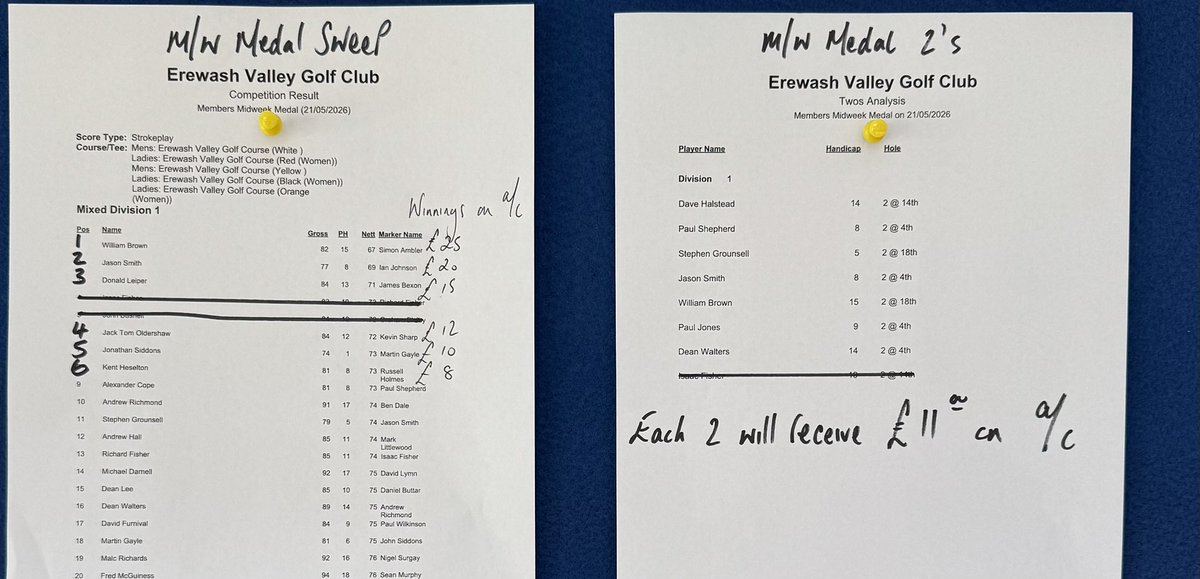 M/W Medal Sweep
Erewash Valley Golf Club
Competition Result
Members Midweek Medal (21/05/2026)
Score Type: Strokeplay
Course/Tee: Mens: Erewash Valley Golf Course (White )
Ladies: Erewash Valley Golf Course (Red (Women))
Mens: Erewash Valley Golf Course (Yellow )
Ladies: Erewash Valley Golf Course (Black (Women))
Ladies: Erewash Valley Golf Course (Orange
(Women))
Mixed Division 1
Winnings on a/c
Pos Name Gross PH Nett Marker Name
1 William Brown 82 15 67 Simon Ambler £25
2 Jason Smith 77 8 69 Ian Johnson £20
3 Donald Leiper 84 13 71 James Bexon £15
4 Jack Tom Oldershaw 84 12 72 Kevin Sharp £12
5 Jonathan Siddons 74 1 73 Martin Gayle £10
6 Kent Heselton 81 8 73 Russell £8
Holmes
9 Alexander Cope 81 8 73 Paul Shepherd
10 Andrew Richmond 91 17 74 Ben Dale
11 Stephen Grounsell 79 5 74 Jason Smith
12 Andrew Hall 85 11 74 Mark
Littlewood
13 Richard Fisher 85 11 74 Isaac Fisher
14 Michael Darnell 92 17 75 David Lymn
15 Dean Lee 85 10 75 Daniel Buttar
16 Dean Walters 89 14 75 Andrew
Richmond
17 David Furnival 84 9 75 Paul Wilkinson
18 Martin Gayle 81 6 75 John Siddons
19 Malc Richards 92 16 76 Nigel Surgay
20 Fred McGuiness 94 18 76 Sean Murphy
M/W Medal 2's
Erewash Valley Golf Club
Twos Analysis
Members Midweek Medal on 21/05/2026
Player Name Handicap Hole
Division 1
Dave Halstead 14 2 @ 14th
Paul Shepherd 8 2 @ 4th
Stephen Grounsell 5 2 @ 18th
Jason Smith 8 2 @ 4th
William Brown 15 2 @ 18th
Paul Jones 9 2 @ 4th
Dean Walters 14 2 @ 4th
Isaac Fisher
Each 2 will receive £11 on a/c